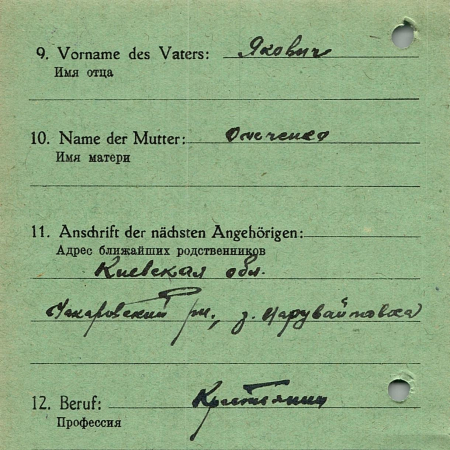 9. Vorname des Vaters: Якович
Имя отца
10. Name der Mutter:
Имя матери
11. Anschrift der nächsten Angehörigen:
Адрес ближайших родственников
Киевская обл.
12. Beruf: Крестьянин
Профессия